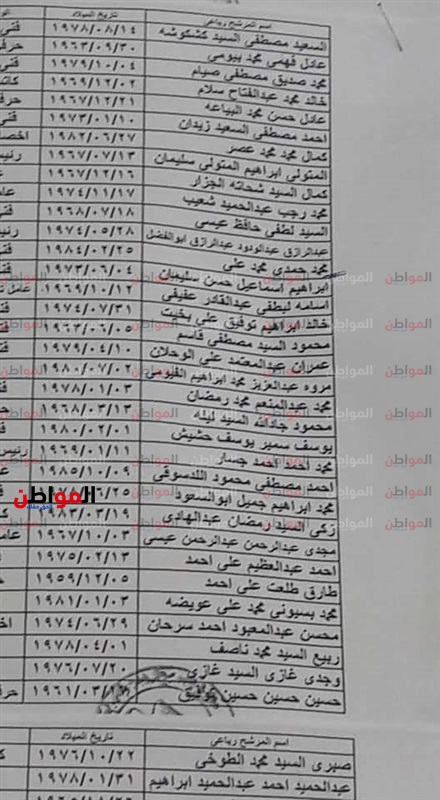 اسم المرشح رباعى تاريخ الميلاد
السعيد مصطفى السيد كشكوشه ١٩٧٨/٠٨/١٤ فنى
عادل فهمى محمد بيومى ١٩٦٣/٠٩/٣٠ حرفى
محمد صديق مصطفى صيام ١٩٧٩/١٠/٠٤ فنى
خالد محمد عبدالفتاح سلام ١٩٦٩/١٢/٠٢
عادل حسن محمد البياعه ١٩٦٧/١٢/٢١
احمد مصطفى السعيد زيدان ١٩٧٣/٠١/١٠ فنى
كمال محمد محمد عصر ١٩٨٢/٠٦/٢٧
المتولى ابراهيم المتولى سليمان ١٩٦٧/٠٧/١٣
كمال السيد شحاته الجزار ١٩٦٧/١٢/١٦
محمد رجب عبدالحميد شعيب ١٩٧٤/١١/١٧
السيد لطفى حافظ عيسى ١٩٦٨/٠٧/١٨
عبدالرازق عبدالودود عبدالرازق ابوالفضل ١٩٧٤/٠٥/٢٨
محمد حمدى محمد على ١٩٨٤/٠٢/٢٥
ابراهيم اسماعيل حسن سليمان ١٩٧٣/٠٦/٠٤
اسامه لبطفى عبدالقادر عفيفى ١٩٦٩/١٠/١٢
خالد ابراهيم توفيق على بخيت ١٩٧٤/٠٧/٣١
محمود السيد مصطفى قاسم ١٩٦٣/٠٦/٠٥
عمران عبدالمعتمد على الوحلان ١٩٧٩/٠٤/١٠
مروه عبدالعزيز محمد ابراهيم الفيومى ١٩٨٠/٠٧/٠٢
محمد عبدالمنعم محمد رمضان ١٩٧٨/٠١/٠٣
محمود جادالله السيد ليله ١٩٦٨/٠٣/١٣
يوسف سمير يوسف حشيش ١٩٨٠/٠٢/٠١
محمد احمد احمد جسار ١٩٦٩/٠١/١١
احمد مصطفى محمود اللدسوقى ١٩٨٥/١٠/٠٩
محمد ابراهيم جميل ابوالسعود
زكى السيد رمضان عبدالهادى ١٩٨٣/٠٣/١٩
مجدى عبدالرحمن عبدالرحمن عيسى ١٩٦٧/١٠/٠٣
احمد عبدالعظيم على احمد ١٩٧٥/٠٢/١٣
طارق طلعت على احمد ١٩٥٩/١٢/٠٥
محمد بسيونى محمد على عويضه ١٩٨١/٠١/٠٣
محسن عبدالمعبود احمد سرحان ١٩٧٤/٠٦/٢٩
ربيع السيد محمد ناصف ١٩٧٨/٠٤/٠١
وجدى غازى السيد غازى ١٩٧٦/٠٧/٢٠
حسين حسين حسين توفيق
المواطن
اسم المرشح رباعى تاريخ الميلاد
صبرى السيد محمد الطوخى ١٩٧٦/١٠/٢٢
عبدالحميد احمد عبدالحميد ابراهيم ١٩٧٨/٠١/٣١